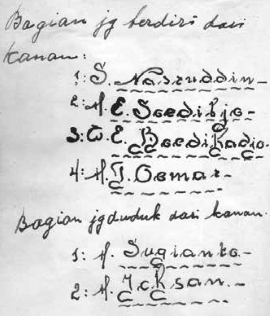 Bagian jg berdiri dari
kanan:
1: S. Nasruddin-
2: M. E. Soedibjo-
3: O. E. Boedikadjo-
4: M. J. Oemar-
Bagian jg duduk dari kanan-
1: M. Sugianto-
2: M. Ichsan-